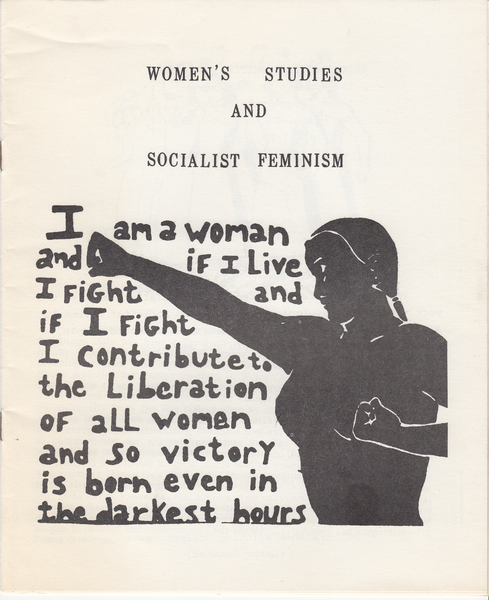 WOMEN'S STUDIES
AND
SOCIALIST FEMINISM
I am a woman
and if I Live
I FiGht and
iF I FiGht
I contribute to
the Liberation
OF aLL women
and so victory
is born even in
the darkest hours